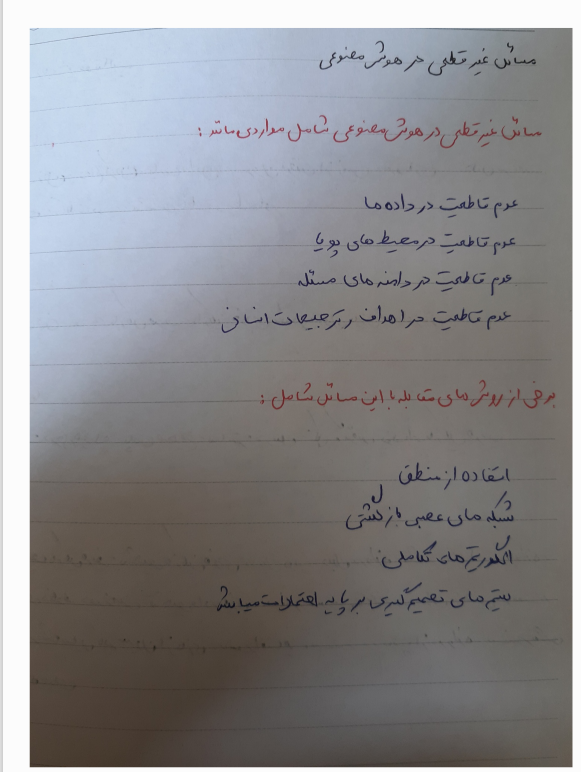 مسائل غیر قطعی در هوش مصنوعی
مسائل غیر قطعی در هوش مصنوعی شامل مواردی مانند :
عدم قاطعیت در داده ها
عدم قاطعیت در محیط های پویا
عدم قاطعیت در دامنه های مسئله
عدم قاطعیت در اهداف و ترجیحات انسانی
برخی از روش های مقابله با این مسائل شامل :
استفاده از منطق
شبکه های عصبی بازگشتی
الگوریتم های تکاملی
سیتم های تصمیم گیری بر پایه احتمالات میباشد